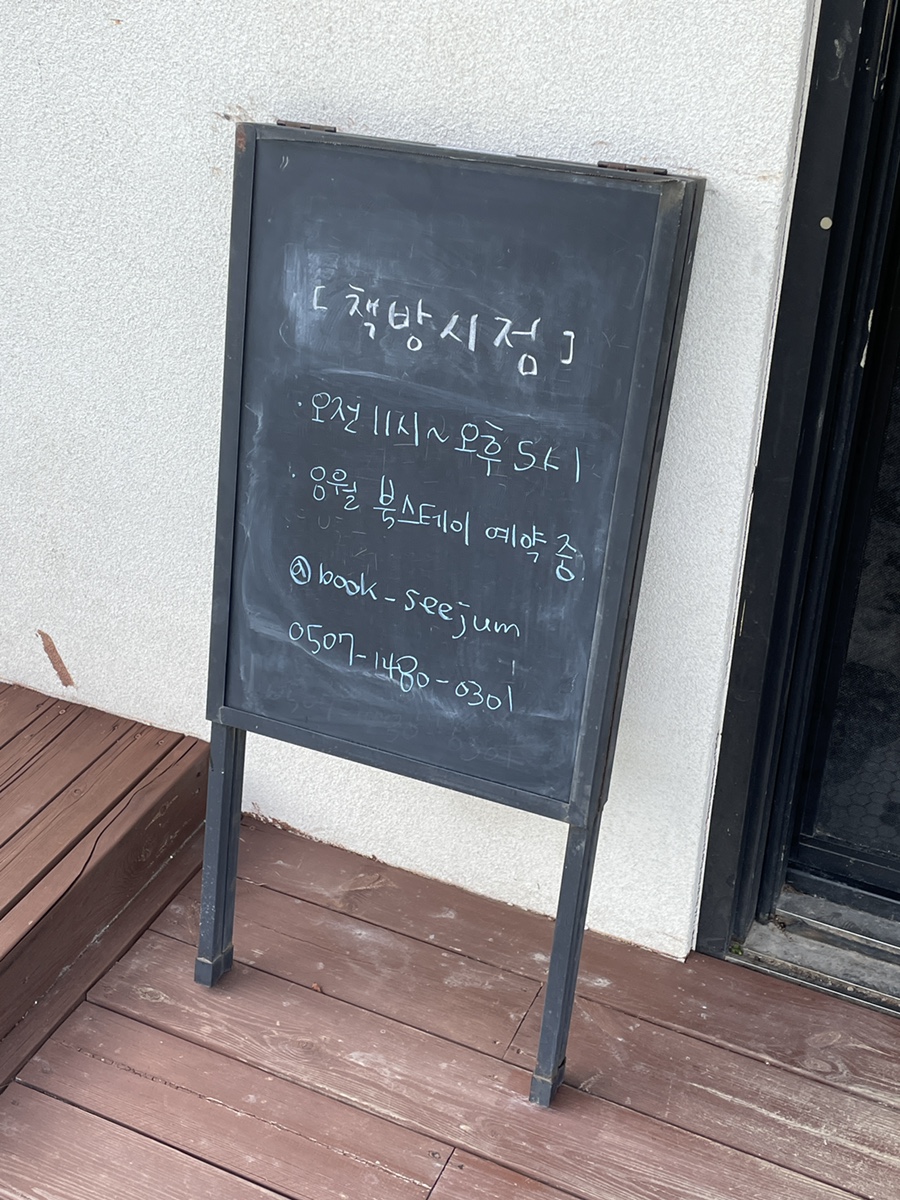 [책방시점]
· 오전 11시 ~ 오후 5시
· 8월 북스테이 예약 중.
@book_seejum
0507-1480-0301